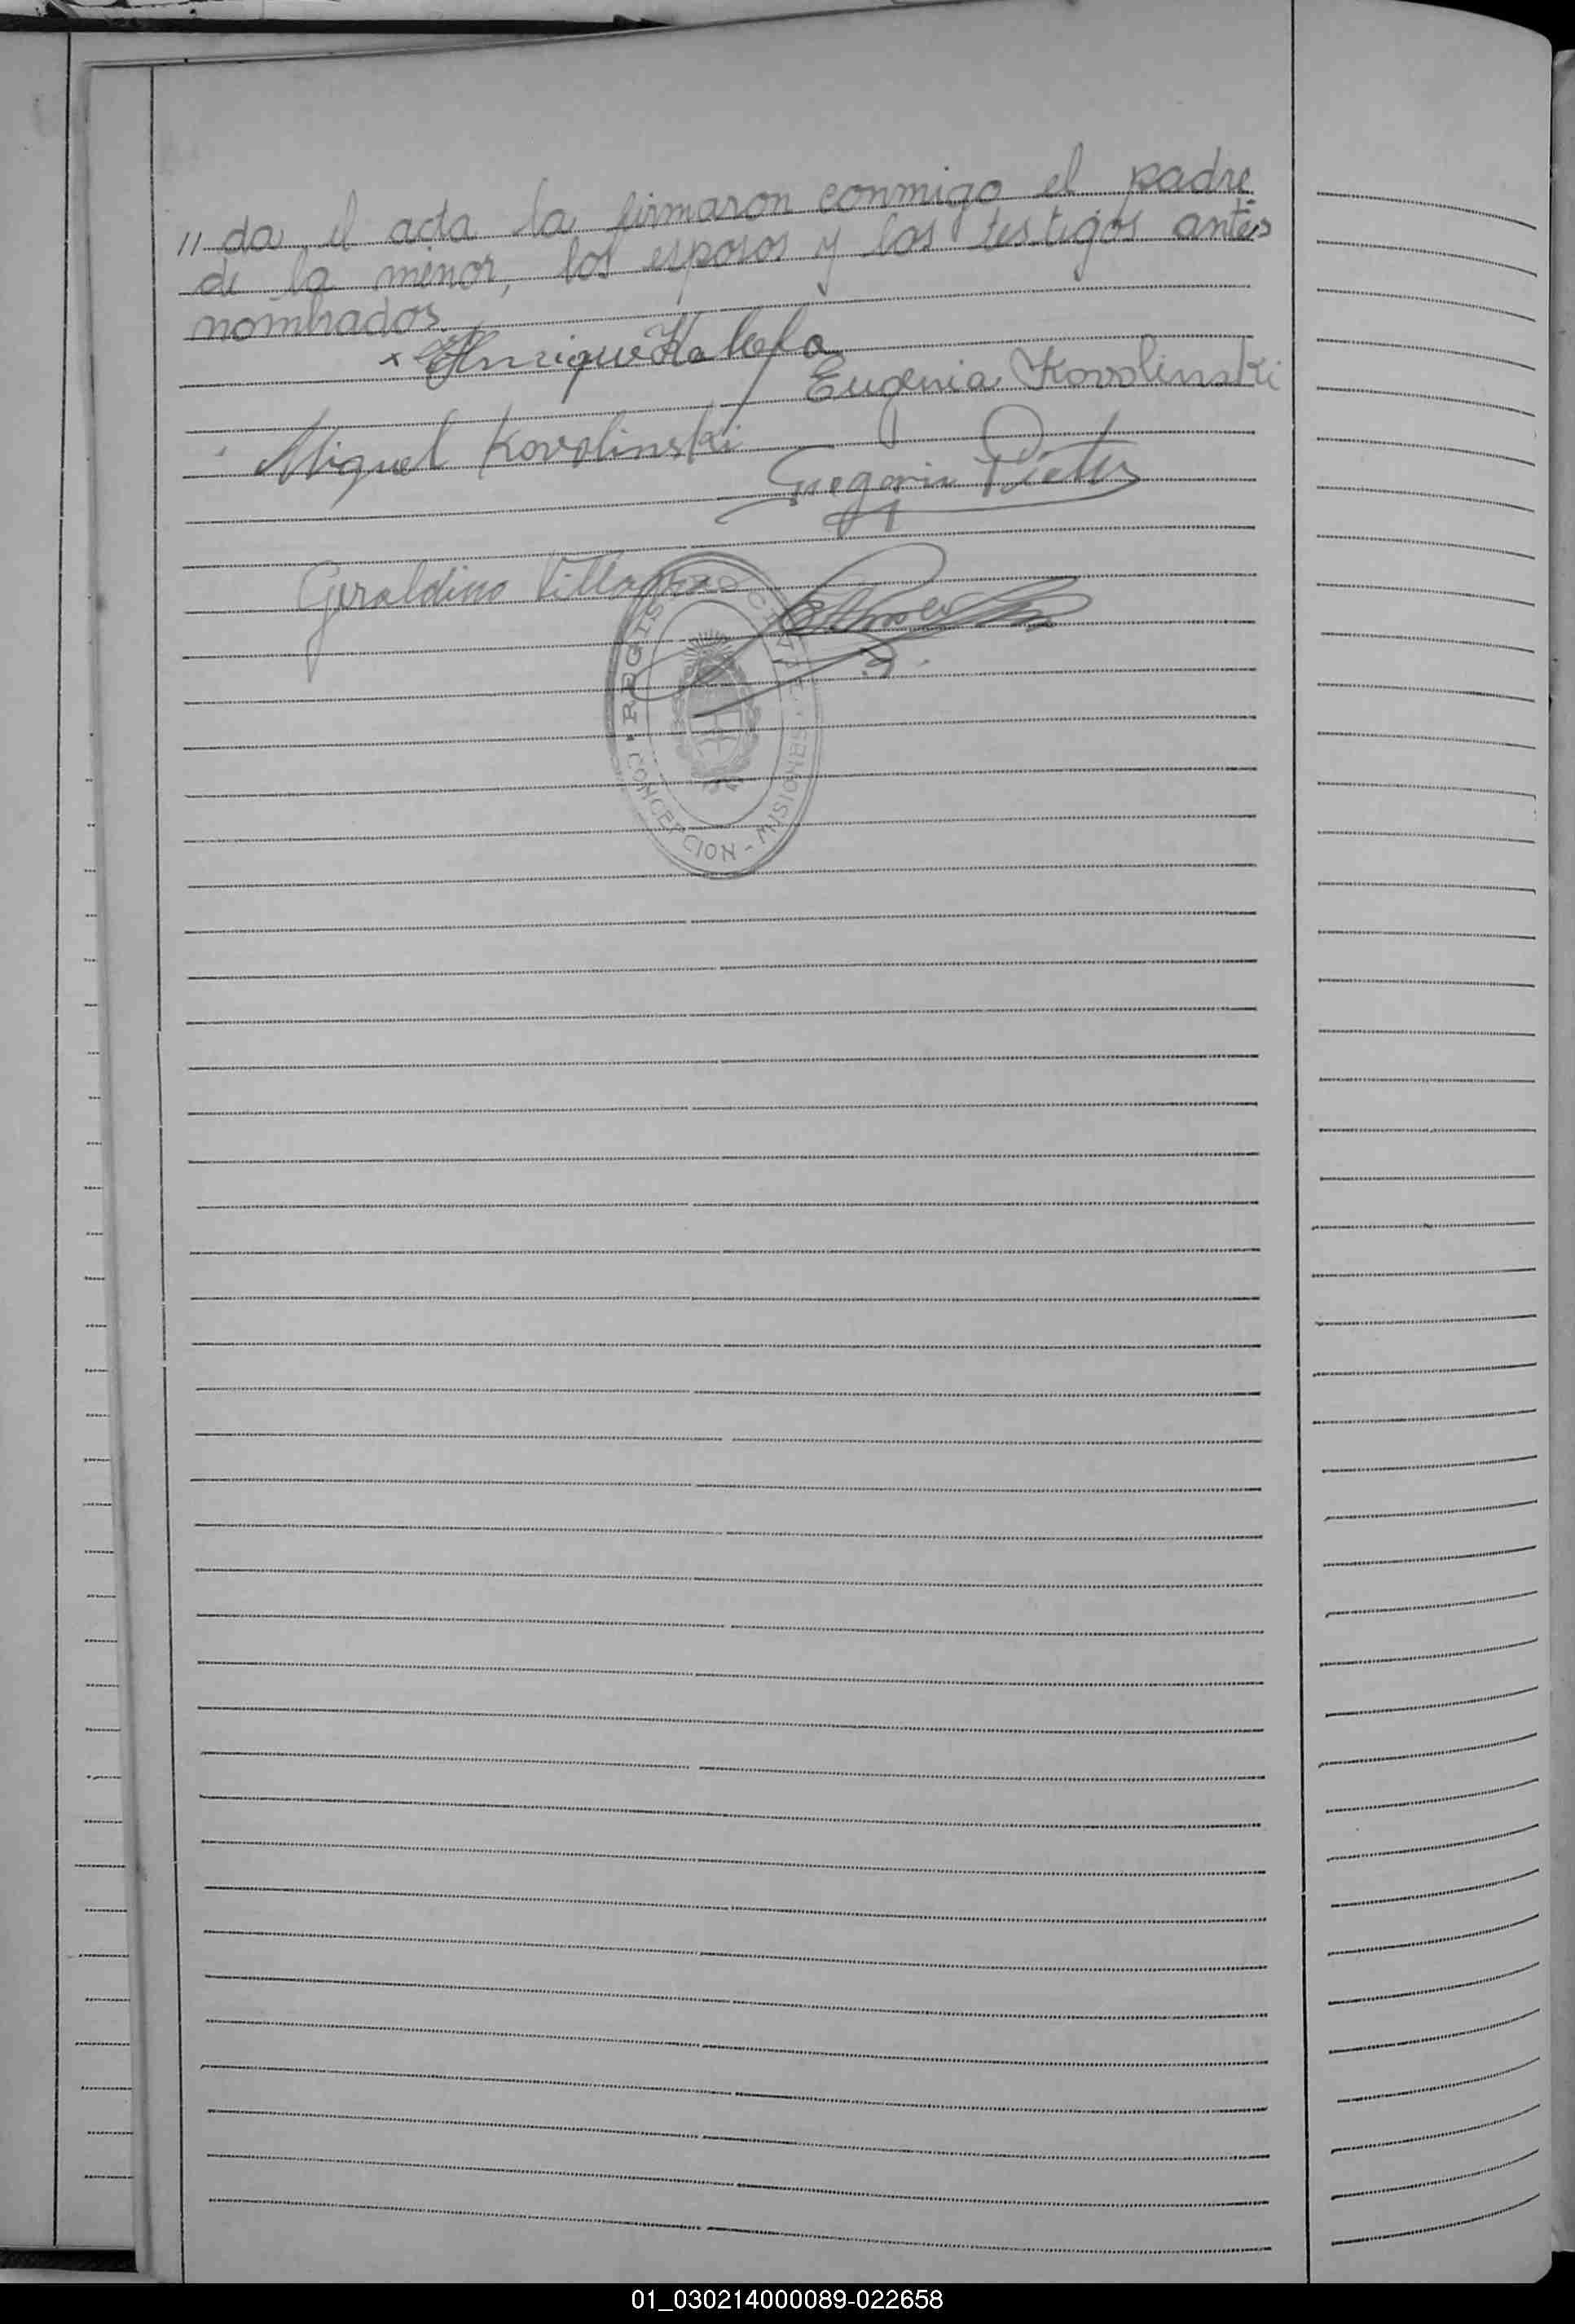 // da el acta la firmaron conmigo el padre
de la menor, los esposos y los testigos antes
nombrados
x Enrique Kalesfa
Eugenia Kovolinski
Miguel Kovolinski
Gregorio
Geraldino
REGISTRO CIVIL
CONCEPCION - MISIONES
01_030214000089-022658